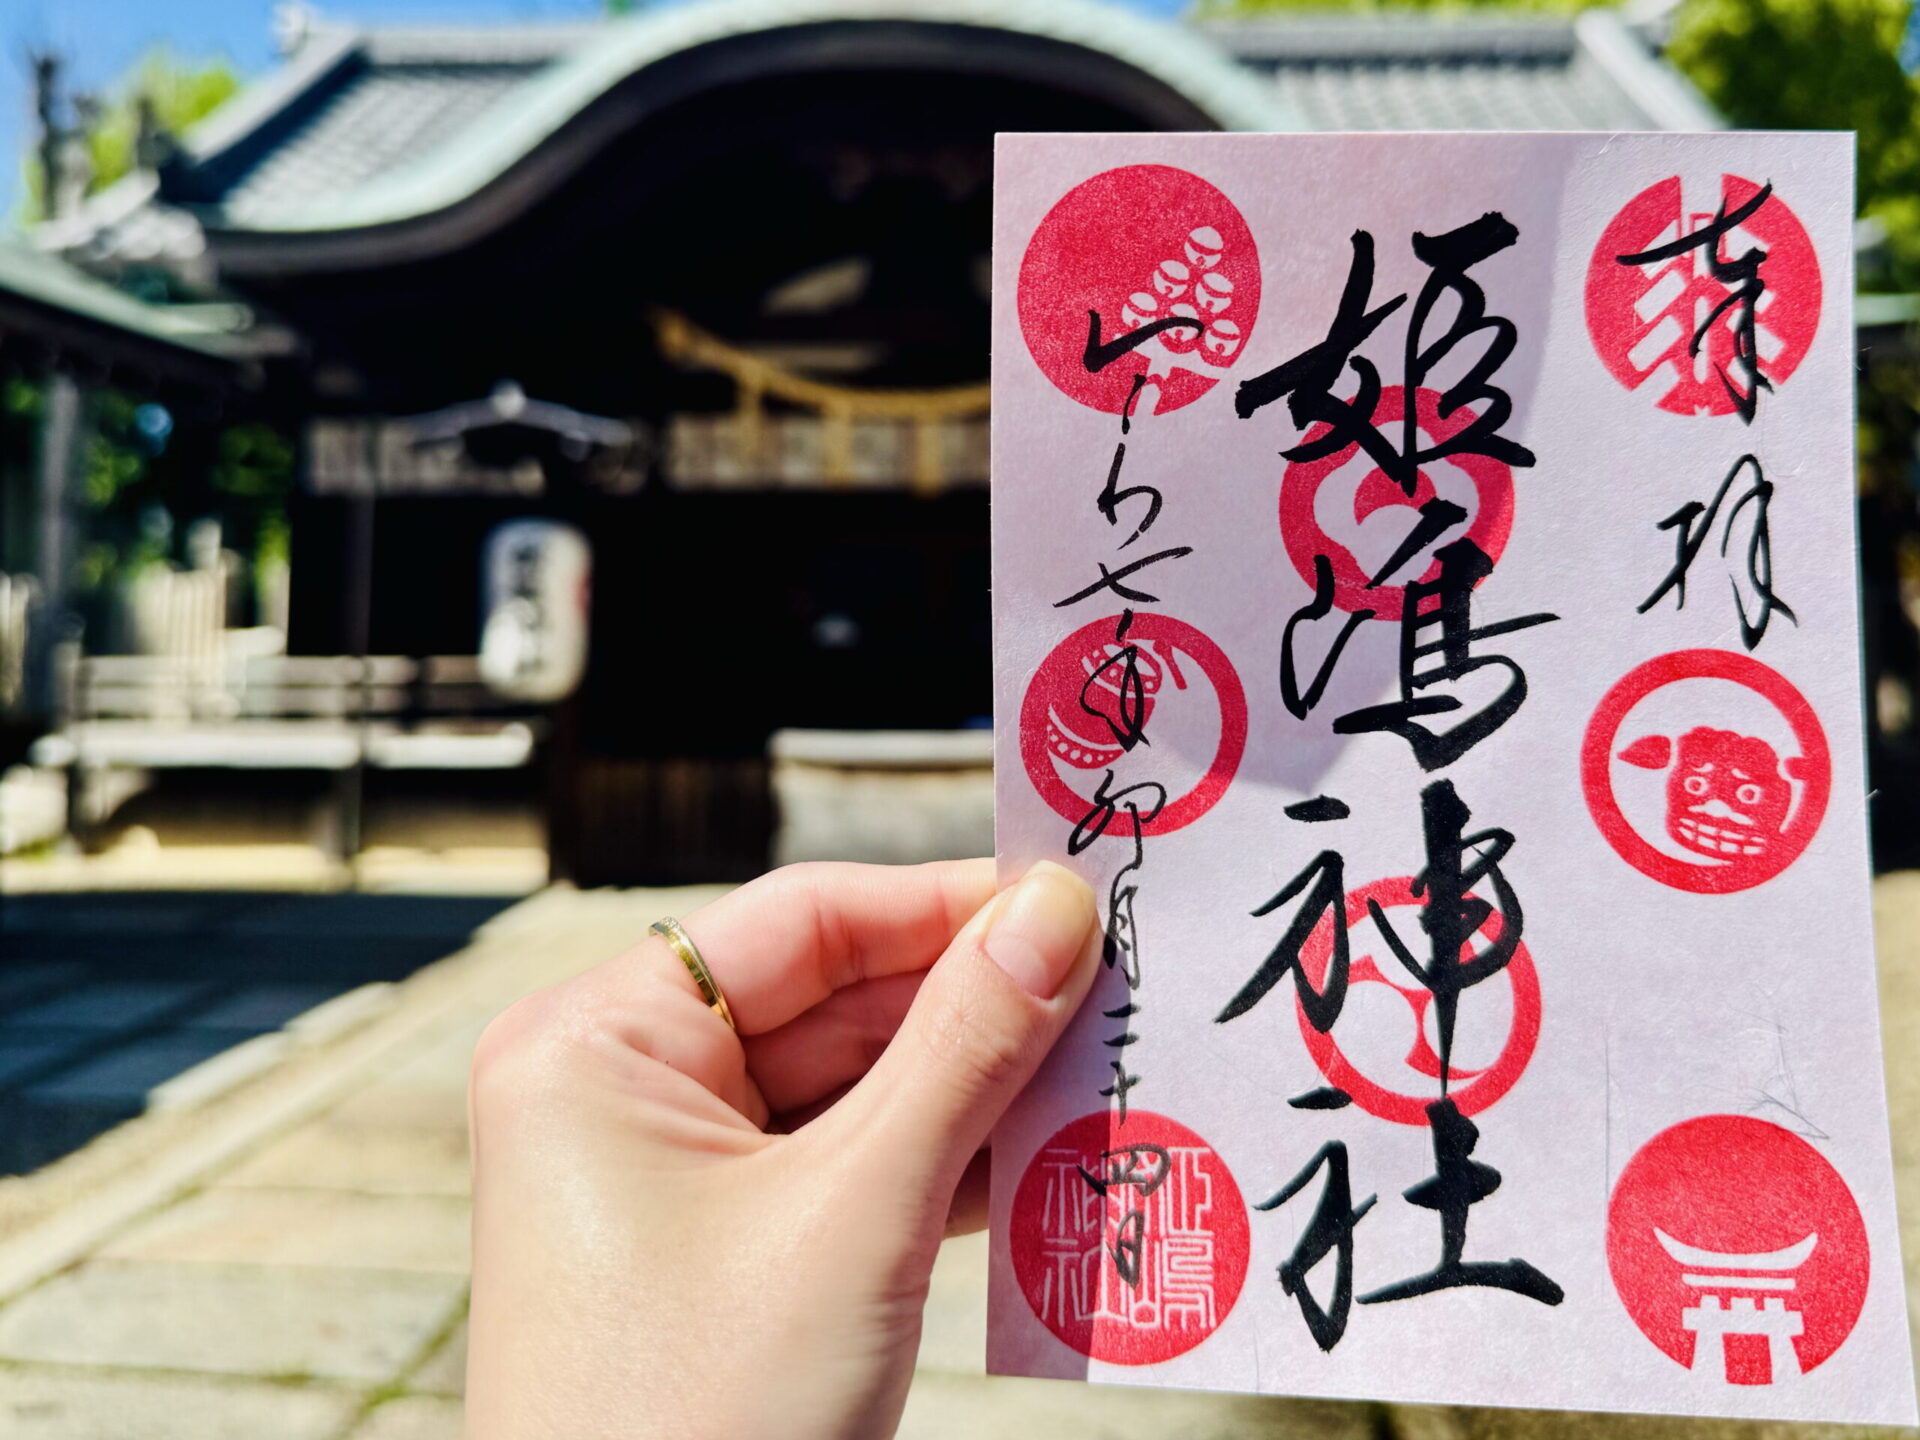 奉拝
姫嶋神社
令和七年卯月二十四日
姫嶋
神社